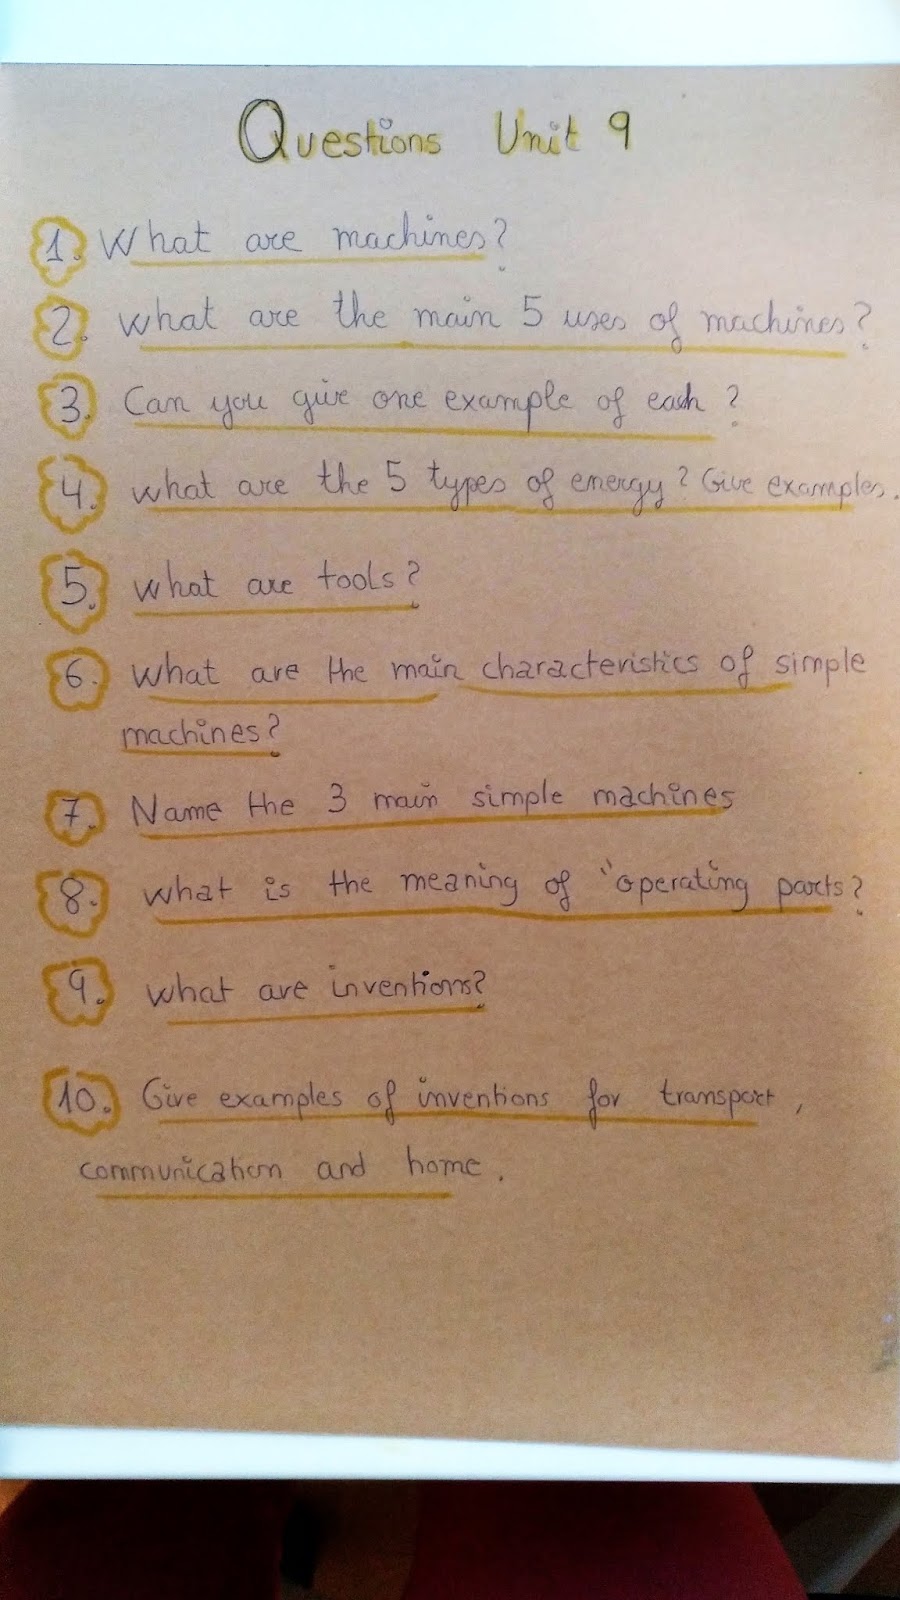 Questions Unit 9
1. What are machines?
2. What are the main 5 uses of machines?
3. Can you give one example of each?
4. What are the 5 types of energy? Give examples.
5. What are tools?
6. What are the main characteristics of simple
machines?
7. Name the 3 main simple machines
8. What is the meaning of "operating parts?
9. What are inventions?
10. Give examples of inventions for transport,
communication and home.